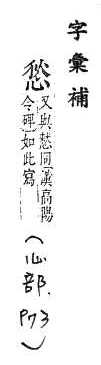 字彙補
又與同漢高陽
令碑如此寫
(心部. P73)